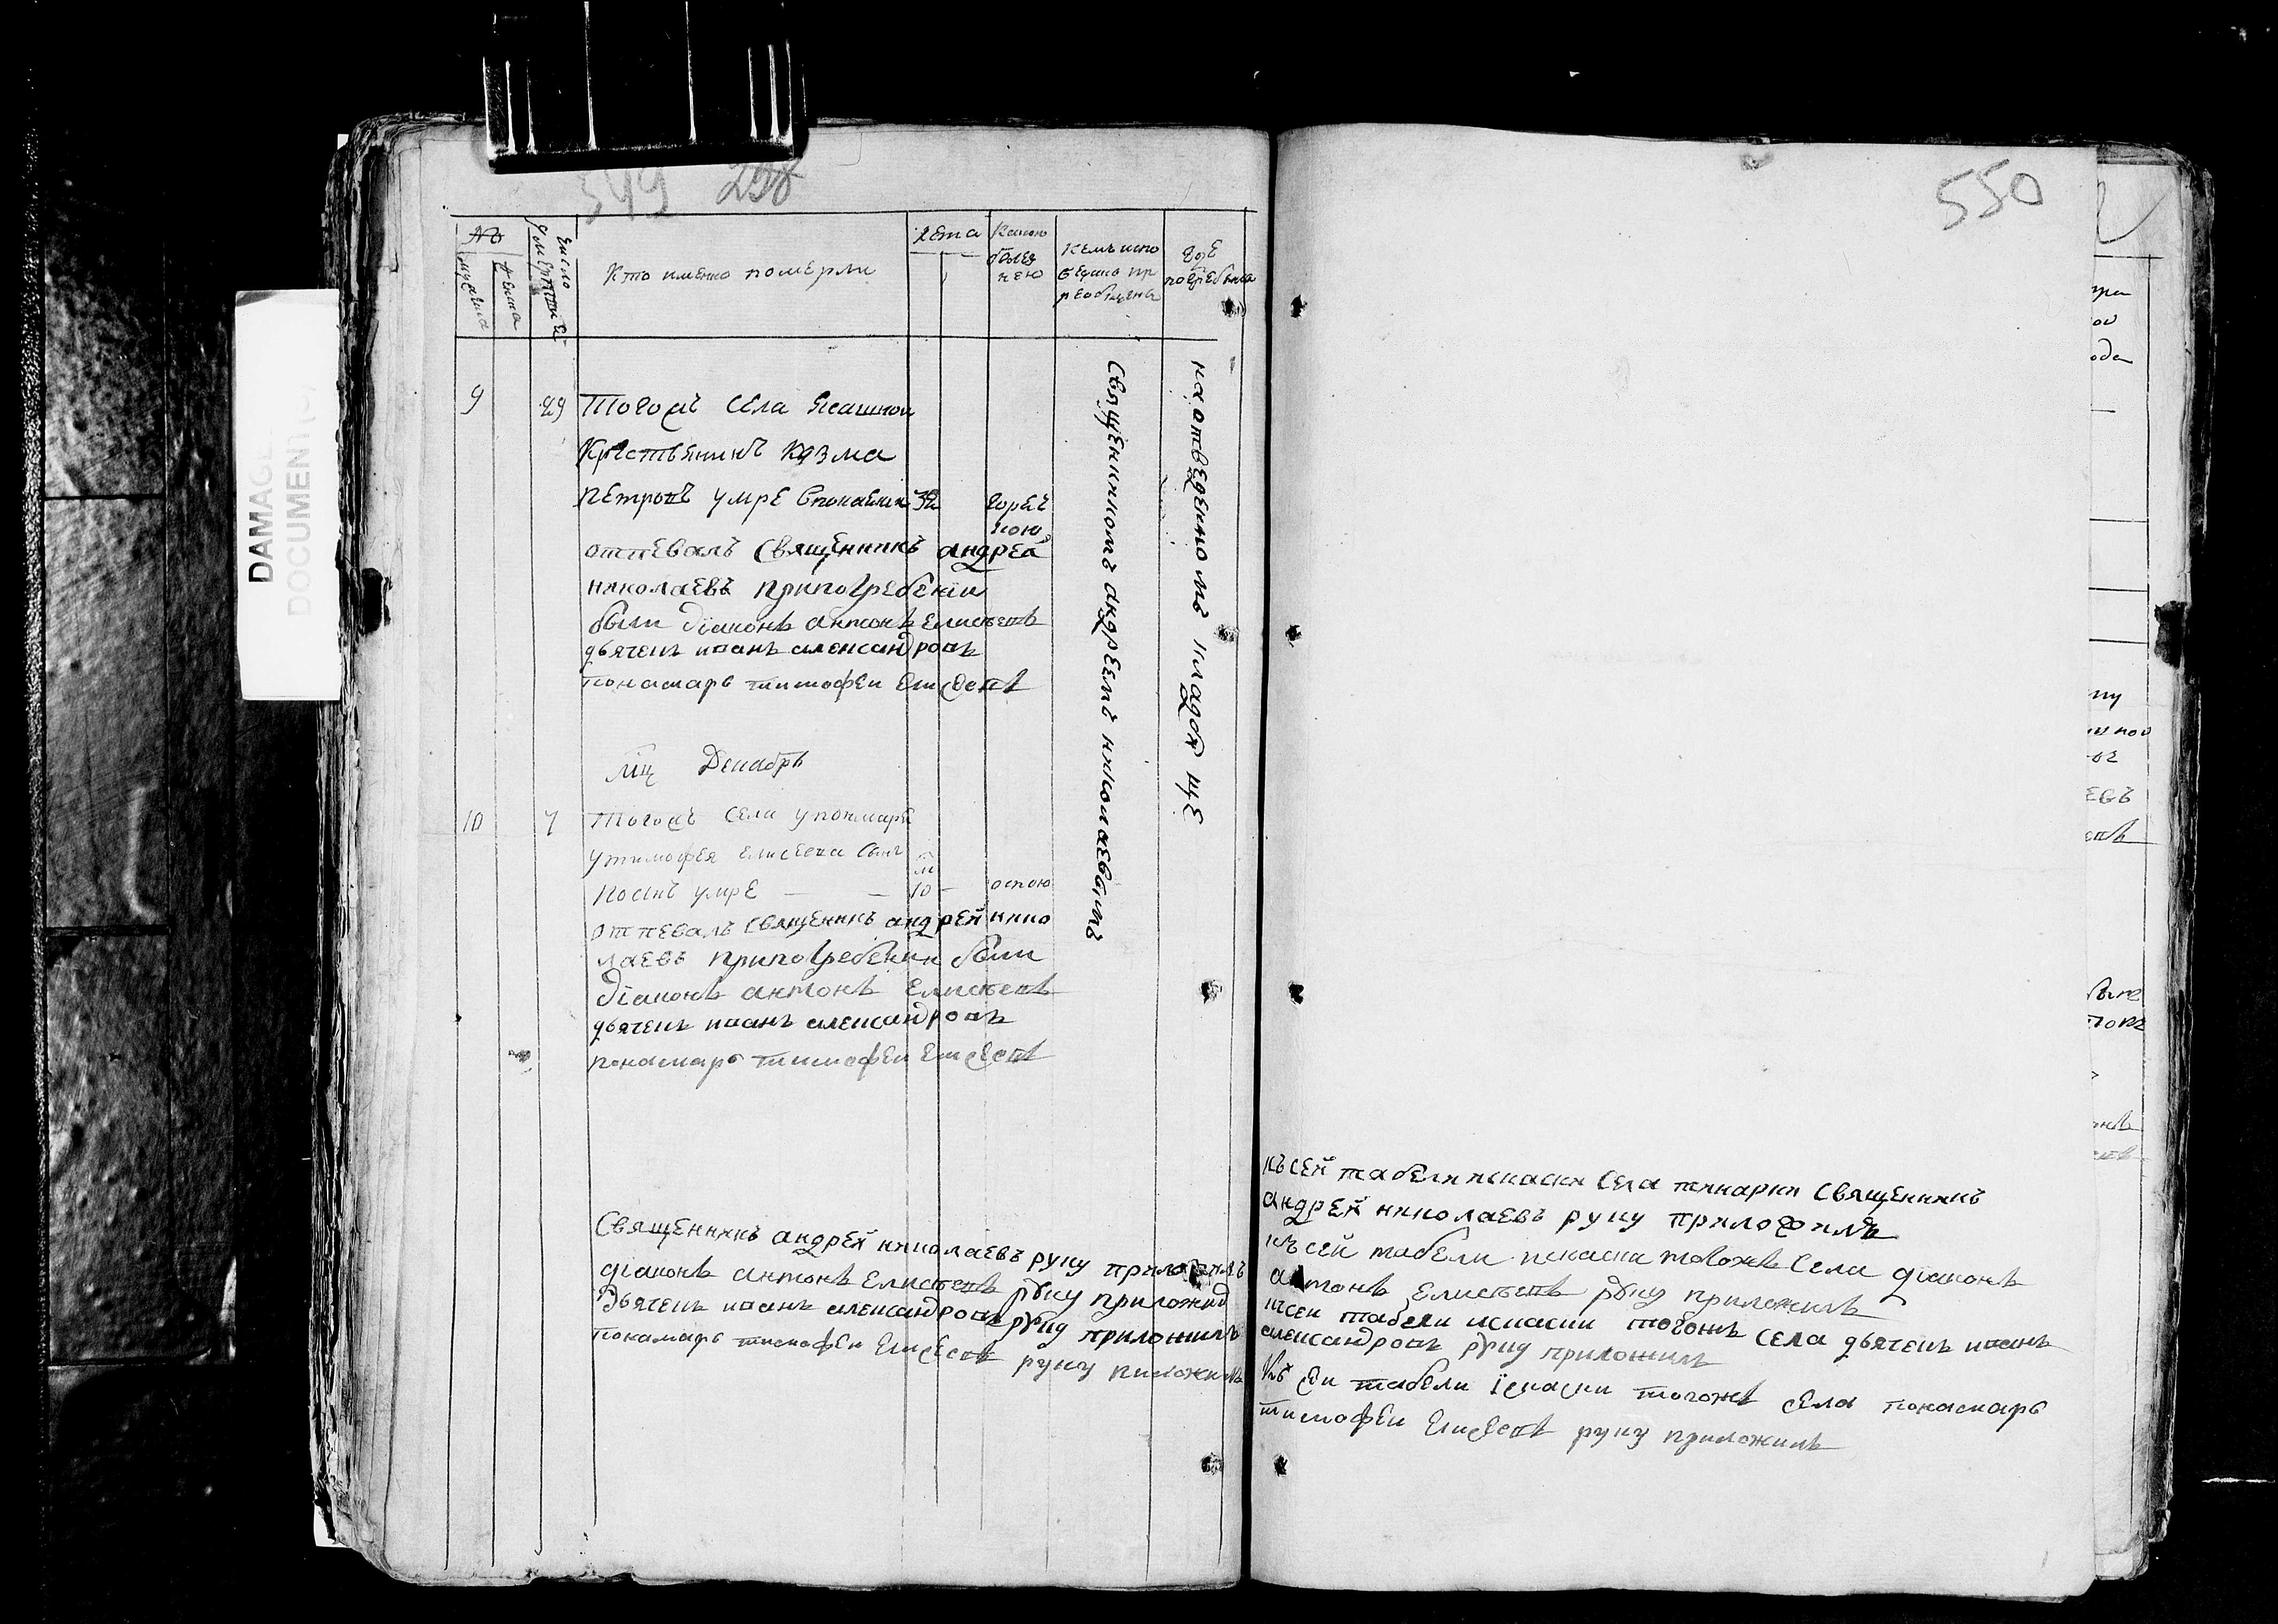 549 298
№
мужеска
женска
Число умертвия
Кто именно померли
лета
Какою
болез
нею
Кемъ испо
ведано пр
реобщены
где
погребены
9 29 Тогожъ села ясашной
крестьянинъ Козма
Петровъ умре 32 горяч
кою
отпевалъ священникъ андрей
николаевъ припогребении
были диаконъ антонъ Елисеевъ
дьячекъ иванъ александровъ
понамарь тимофеи Елисеевъ
Священникомъ андреемъ николаевымъ
на отведенномъ кладбище
мц Декабрь
10 7 Тогожъ села упонмаря
утимофея елисеева сынъ
умре — — 10 — оспою
м
отпевалъ священикъ андрей нико
лаевъ припогребении были
диаконъ антонъ Елисеевъ
дьячекъ иванъ александровъ
понамарь тимофеи Елисеевъ
Священникъ андрей николаевъ руку приложилъ
диаконъ антонъ Елисеевъ руку приложил
Дьячекъ иванъ александровъ руку приложилъ
понамарь тимофеи Елисеевъ руку приложилъ
550
къ сей табели искаски села священикъ
андрей николаевъ руку приложилъ
къ сей табели искаски тогожъ села диаконъ
антонъ Елисеевъ руку приложилъ
ксеи табели искаски тогожъ села дьячекъ иванъ
александровъ руку приложилъ
Къ сеи табели iскаски тогожъ села понамарь
тимофеи Елисеевъ руку приложилъ
DAMAGE
DOCUMENT(S)